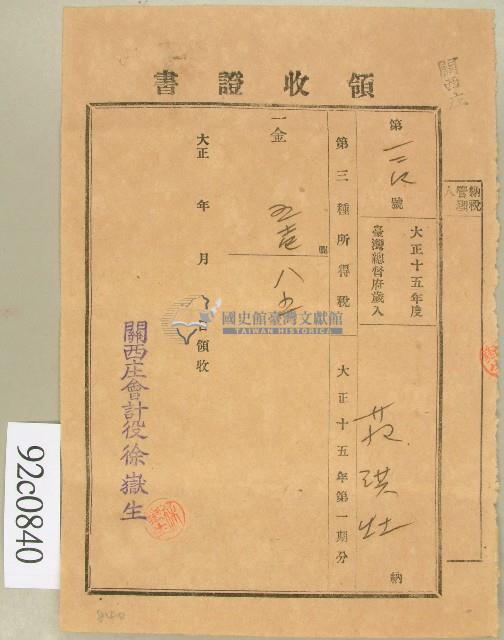 關西庄
領收證書
納稅管理人
第 號
大正十五年度
臺灣總督府歲入
納
第三種所得稅
大正十五年第一期分
一金
圓
八五
大正 年 月 日領收
關西庄會計役徐嶽生
國史館臺灣文獻館
TAIWAN HISTORICA
92c0840